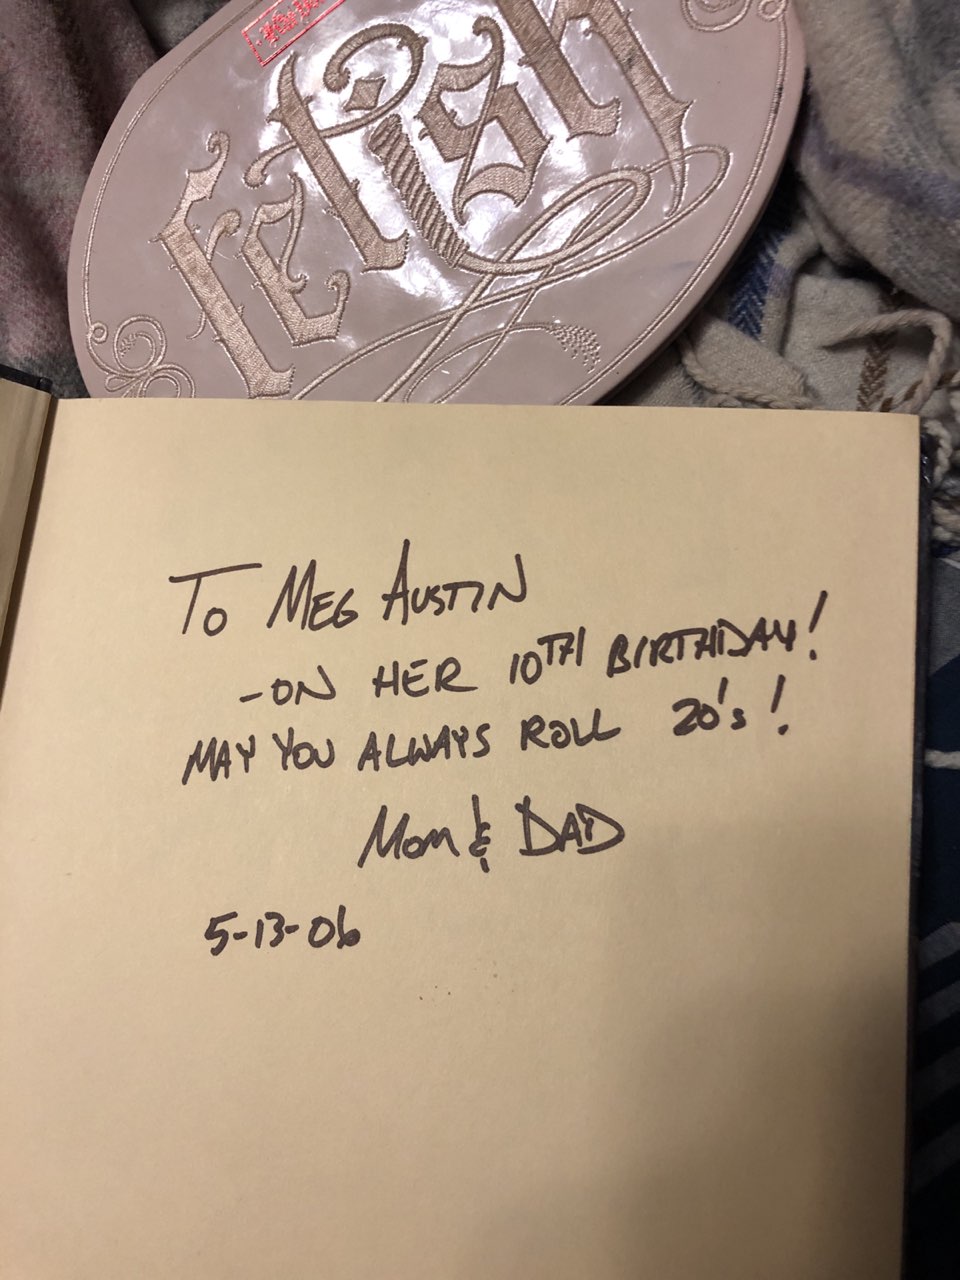 Fetish
To Meg Austin
-ON HER 10TH BIRTHDAY!
MAY YOU ALWAYS ROLL 20's!
Mom & DAD
5-13-06